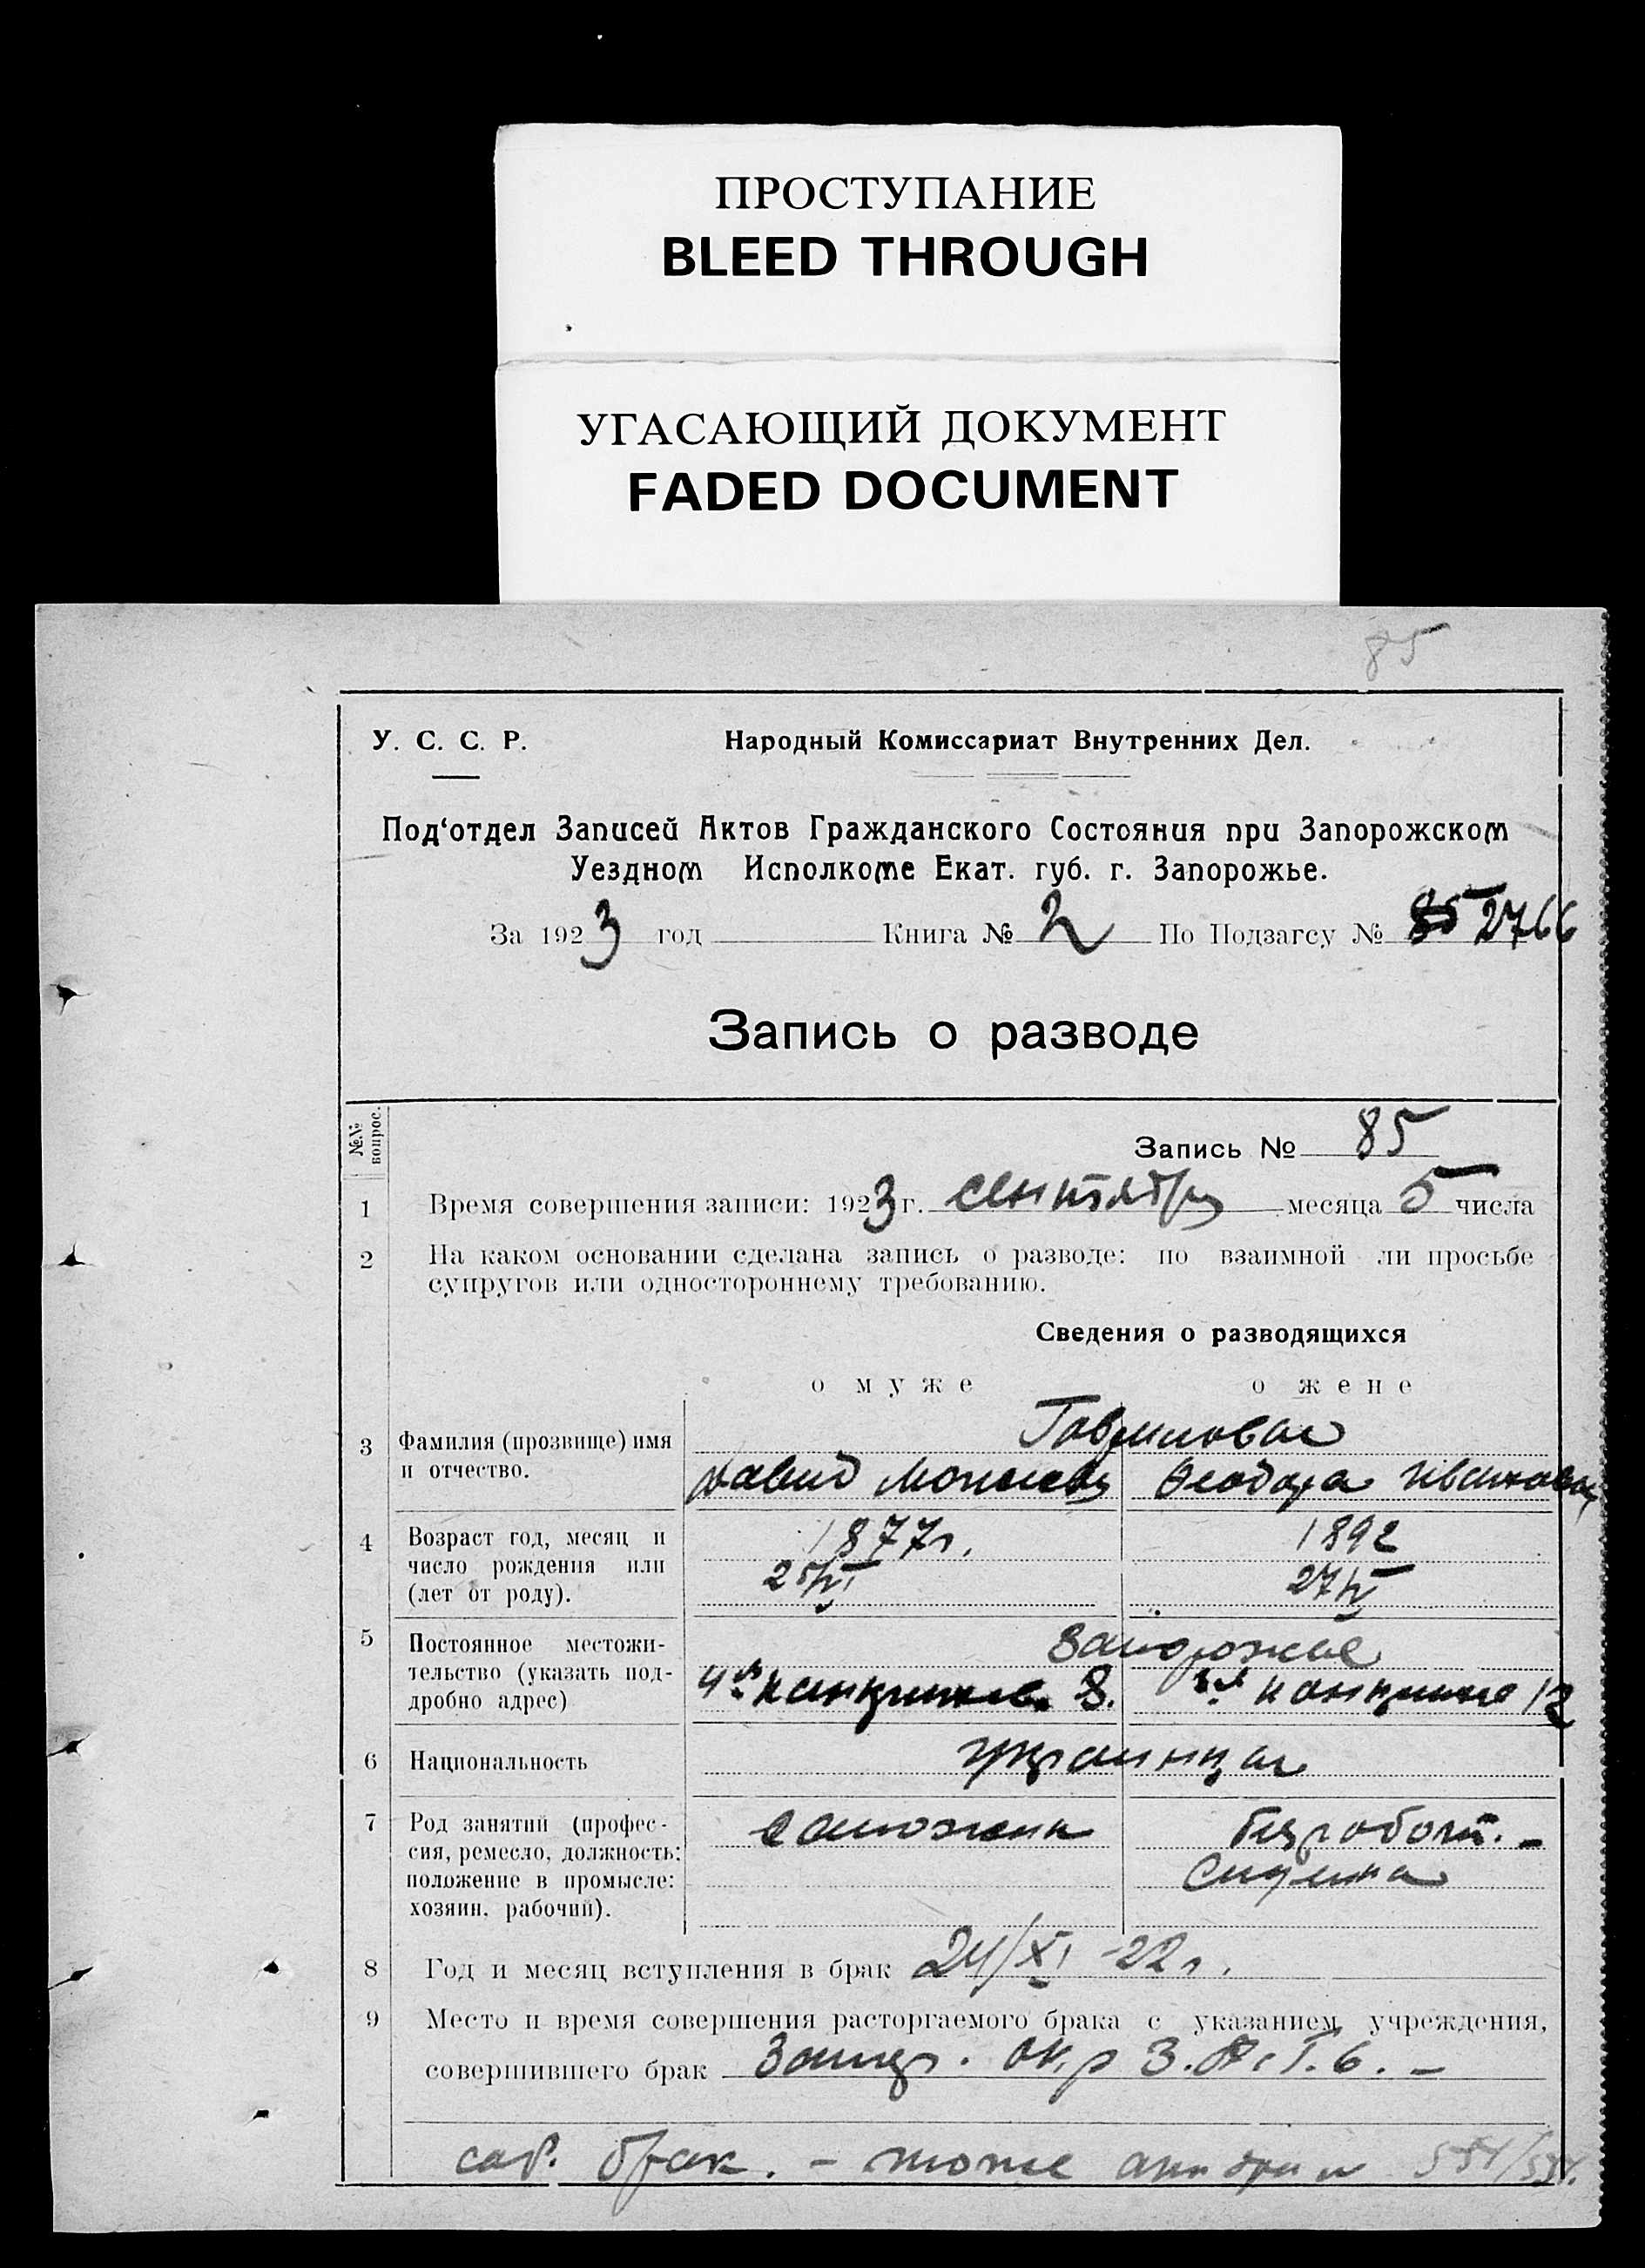 ПРОСТУПАНИЕ
BLEED THROUGH
УГАСАЮЩИЙ ДОКУМЕНТ
FADED DOCUMENT
85
У. С. С. Р.
Народный Комиссариат Внутренних Дел.
Под‘отдел Записей Актов Гражданского Состояния при Запорожском
Уездном Исполкоме Екат. губ. г. Запорожье.
За 1923 год Книга № 2 По Подзагсу № 85 2766
Запись о разводе
№№ вопрос.
Запись № 85
1 Время совершения записи: 1923 г. сентября месяца 5 числа
2 На каком основании сделана запись о разводе: по взаимной ли просьбе
супругов или одностороннему требованию.
Сведения о разводящихся
о муже о жене
3 Фамилия (прозвище) имя
и отчество.
Давид Феодора Ивановна
4 Возраст год, месяц и
число рождения или
(лет от роду).
1877г. 1892
5 Постоянное местожи-
тельство (указать под-
дробно адрес)
Запорожье
8. 12
6 Национальность
украинцы
7 Род занятий (профес-
сия, ремесло, должность:
положение в промысле:
хозяин, рабочий).
сапожник безработ. -
8 Год и месяц вступления в брак 24/XI 22г.
9 Место и время совершения расторгаемого брака с указанием учреждения,
совершившего брак окр З.А.Г.С. -
брак. - тоже